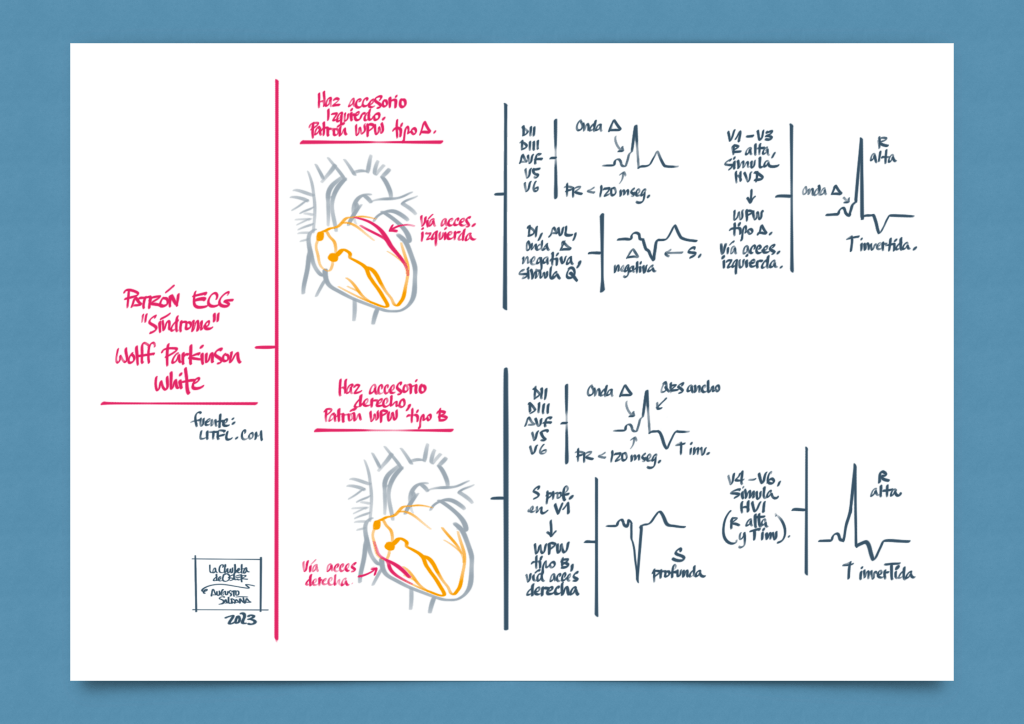 PATRÓN ECG
"Síndrome"
Wolff Parkinson
White
fuente:
LITFL.COM
La Chuleta
de OSLER
Augusto
Saldaña
2023
Haz accesorio
Izquierdo.
Patrón WPW tipo A.
Vía acces.
izquierda
DII
DIII
AVF
V5
V6
Onda Δ
PR < 120 mseg.
DI, AVL,
onda Δ
negativa,
simula Q
Δ
negativa
← S.
V1-V3
R alta,
simula
HVD
↓
WPW
tipo A.
Vía acces.
izquierda.
Onda Δ
R
alta
T invertida.
Haz accesorio
derecho,
Patrón WPW tipo B
Vía acces
derecha
DII
DIII
AVF
V5
V6
Onda Δ
QRS ancho
T inv.
PR < 120 mseg.
S prof.
en V1
↓
WPW
tipo B,
vía acces
derecha
S
profunda
V4-V6,
simula
HVI
(R alta
y T inv).
R
alta
T invertida